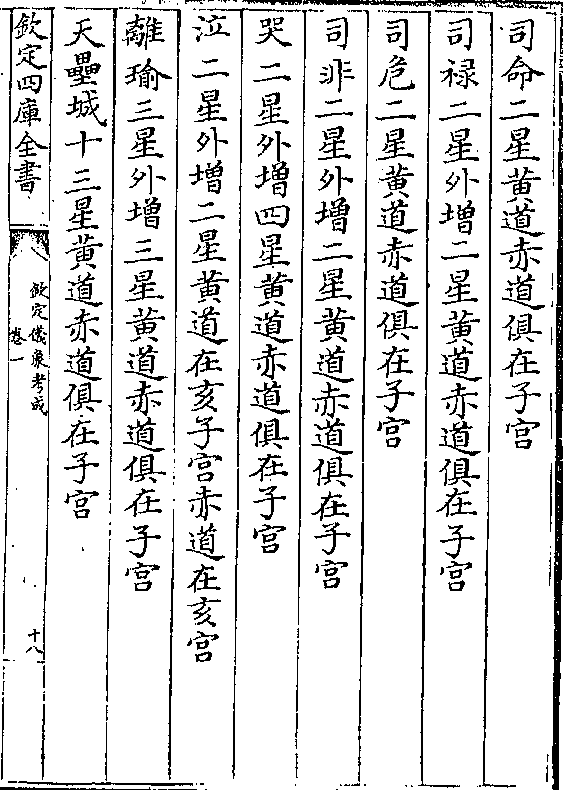 司命二星黄道赤道俱在子宫
司禄二星外增二星黄道赤道俱在子宫
司危二星黄道赤道俱在子宫
司非二星外增二星黄道赤道俱在子宫
哭二星外增四星黄道赤道俱在子宫
泣二星外增二星黄道在亥子宫赤道在亥宫
離瑜三星外增三星黄道赤道俱在子宫
天壘城十三星黄道赤道俱在子宫
欽定四庫全書
欽定儀象考成
卷一
十八